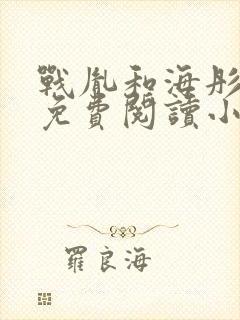 戰胤和海彤
免費閱讀小
羅良海